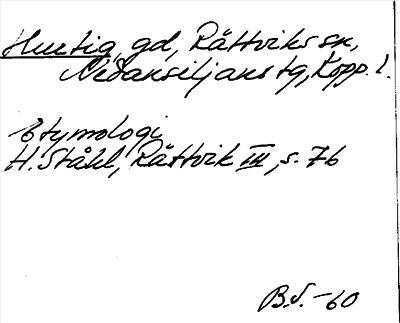 Hurtig, gd, Rättviks sn,
Nedansiljans tg, Kopp. l.
Etymologi
H. Ståhl, Rättvik III, s. 76
B.J. -60